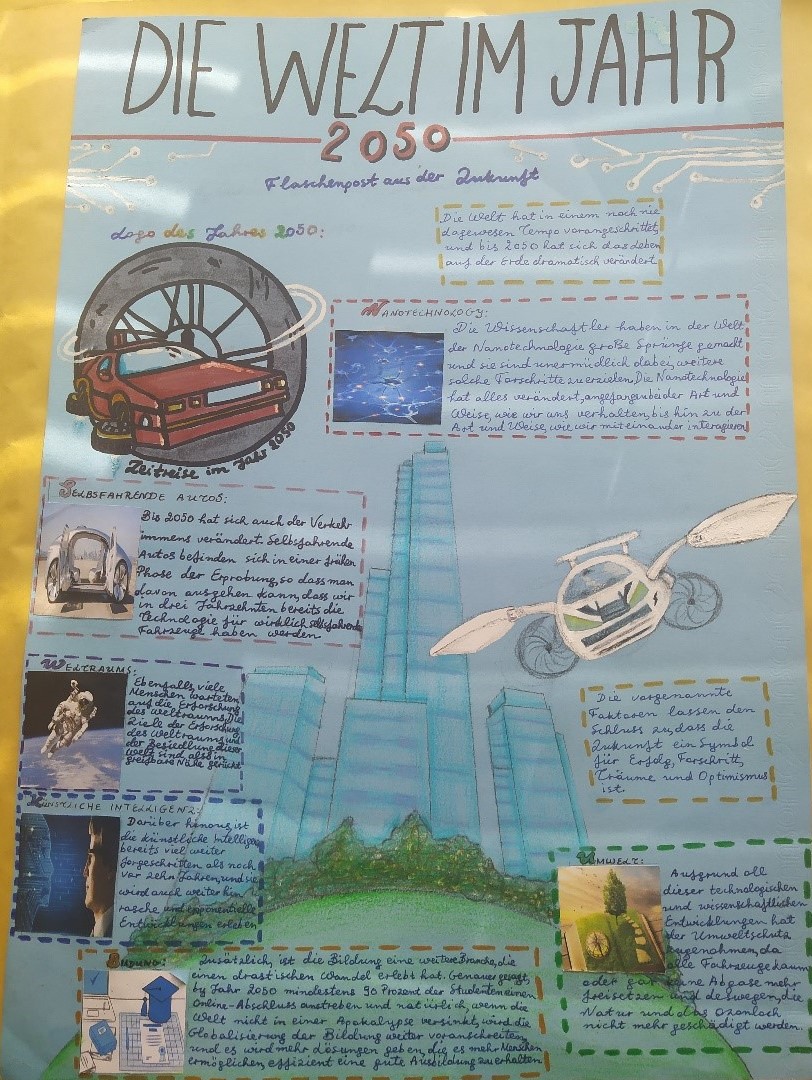 DIE WELT IM JAHR
2050
Flaschenpost aus der Zukunft
Logo des Jahres 2050:
Zeitreise im Jahr 2050
Die Welt hat in einem noch nie
dagewesen Tempo vorangeschrittet,
und bis 2050 hat sich das Leben
auf der Erde dramatisch verändert
NANOTECHNOLOGY:
Die Wissenschaftler haben in der Welt
der Nanotechnologie große Sprünge gemacht
und sie sind unermüdlich dabei, weitere
solche Forschritte zu erzielen. Die Nanotechnologie
hat alles verändert, angefangen bei der Art und
Weise, wie wir uns verhalten, bis hin zu der
Art und Weise, wie wir miteinander interagieren
SELBSFAHRENDE AUTOS:
Bis 2050 hat sich auch der Verkehr
immens verändert. Selbsfahrende
Autos befinden sich in einer frühen
Phase der Erprobung, so dass man
davon ausgehen kann, dass wir
in drei Jahrzehnten bereits die
Technologie für wirklich selbsfahrende
Fahrzeuge haben werden
WELTRAUMS:
Ebenfalls viele
Menschen warteten
auf die Erforschung
des Weltraums. Die
Ziele der Erforschung
des Weltraums und
der Besiedlung dieser
Welt sind also in
greifbare Nähe gerückt
KÜNSTLICHE INTELLIGENZ:
Darüber hinaus, ist
die künstliche Intelligenz
bereits viel weiter
forgeschritten als noch
vor zehn Jahren, und sie
wird auch weiterhin
rasche und exponentielle
Entwicklungen erleben
Die vorgenannte
Faktoren lassen den
Schluss zu, dass die
Zukunft ein Symbol
für Erfolg, Forschritt,
Träume und Optimismus
ist.
BILDUNG:
Zusätzlich, ist die Bildung eine weitere Branche, die
einen drastischen Wandel erlebt hat. Genauer gesagt,
by Jahr 2050 mindestens 90 Prozent der Studenten einen
Online-Abschluss anstreben und natürlich, wenn die
Welt nicht in einer Apokalypse versinkt, wird die
Globalisierung der Bildung weiter voranschreiten,
und es wird mehr Lösungen geben, die es mehr Menschen
ermöglichen, effizient eine gute Ausbildung zu erhalten
UMWELT:
Aufgrund all
dieser technologischen
und wissenschaftlichen
Entwicklungen hat
der Umweltschutz
zugenommen, da
alle Fahrzeuge kaum
oder gar keine Abgase mehr
freisetzen und deswegen, die
Natur und das Ozonloch
nicht mehr geschädigt werden.